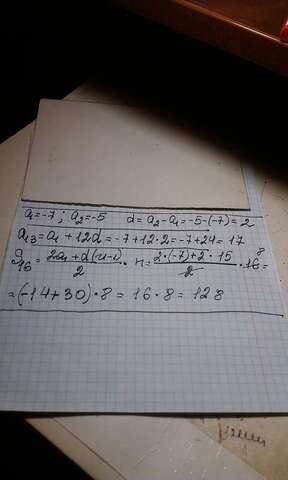 a₁=-7; a₂=-5 d=a₂-a₁=-5-(-7)=2
a₁₃=a₁+12d=-7+12·2=-7+24=17
S₁₆=\frac{2a₁+d(n-1)}{2}·n=\frac{2·(-7)+2·15}{2}·16 8=
=(-14+30)·8=16·8=128